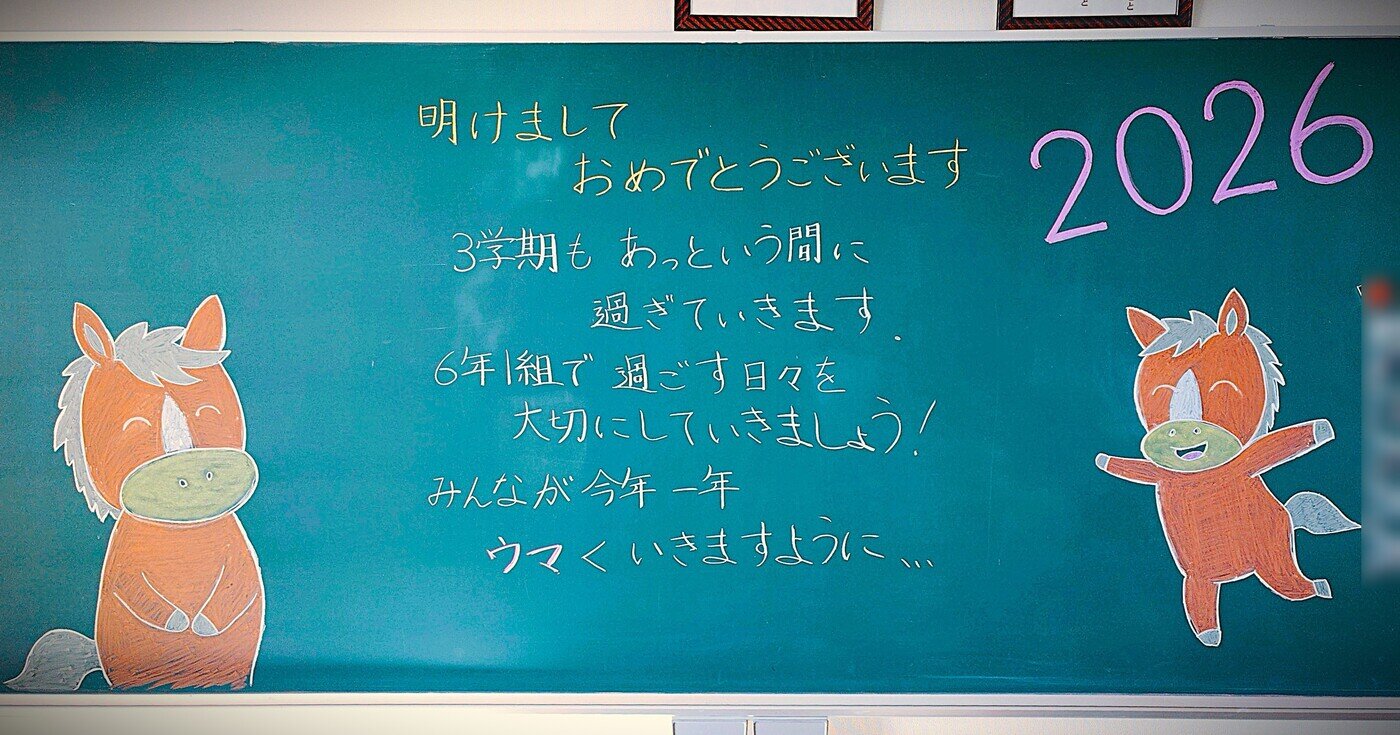 明けまして
おめでとうございます
2026
3学期も あっという間に
過ぎていきます.
6年1組で 過ごす日々を
大切にしていきましょう!
みんなが今年一年
ウマくいきますように...